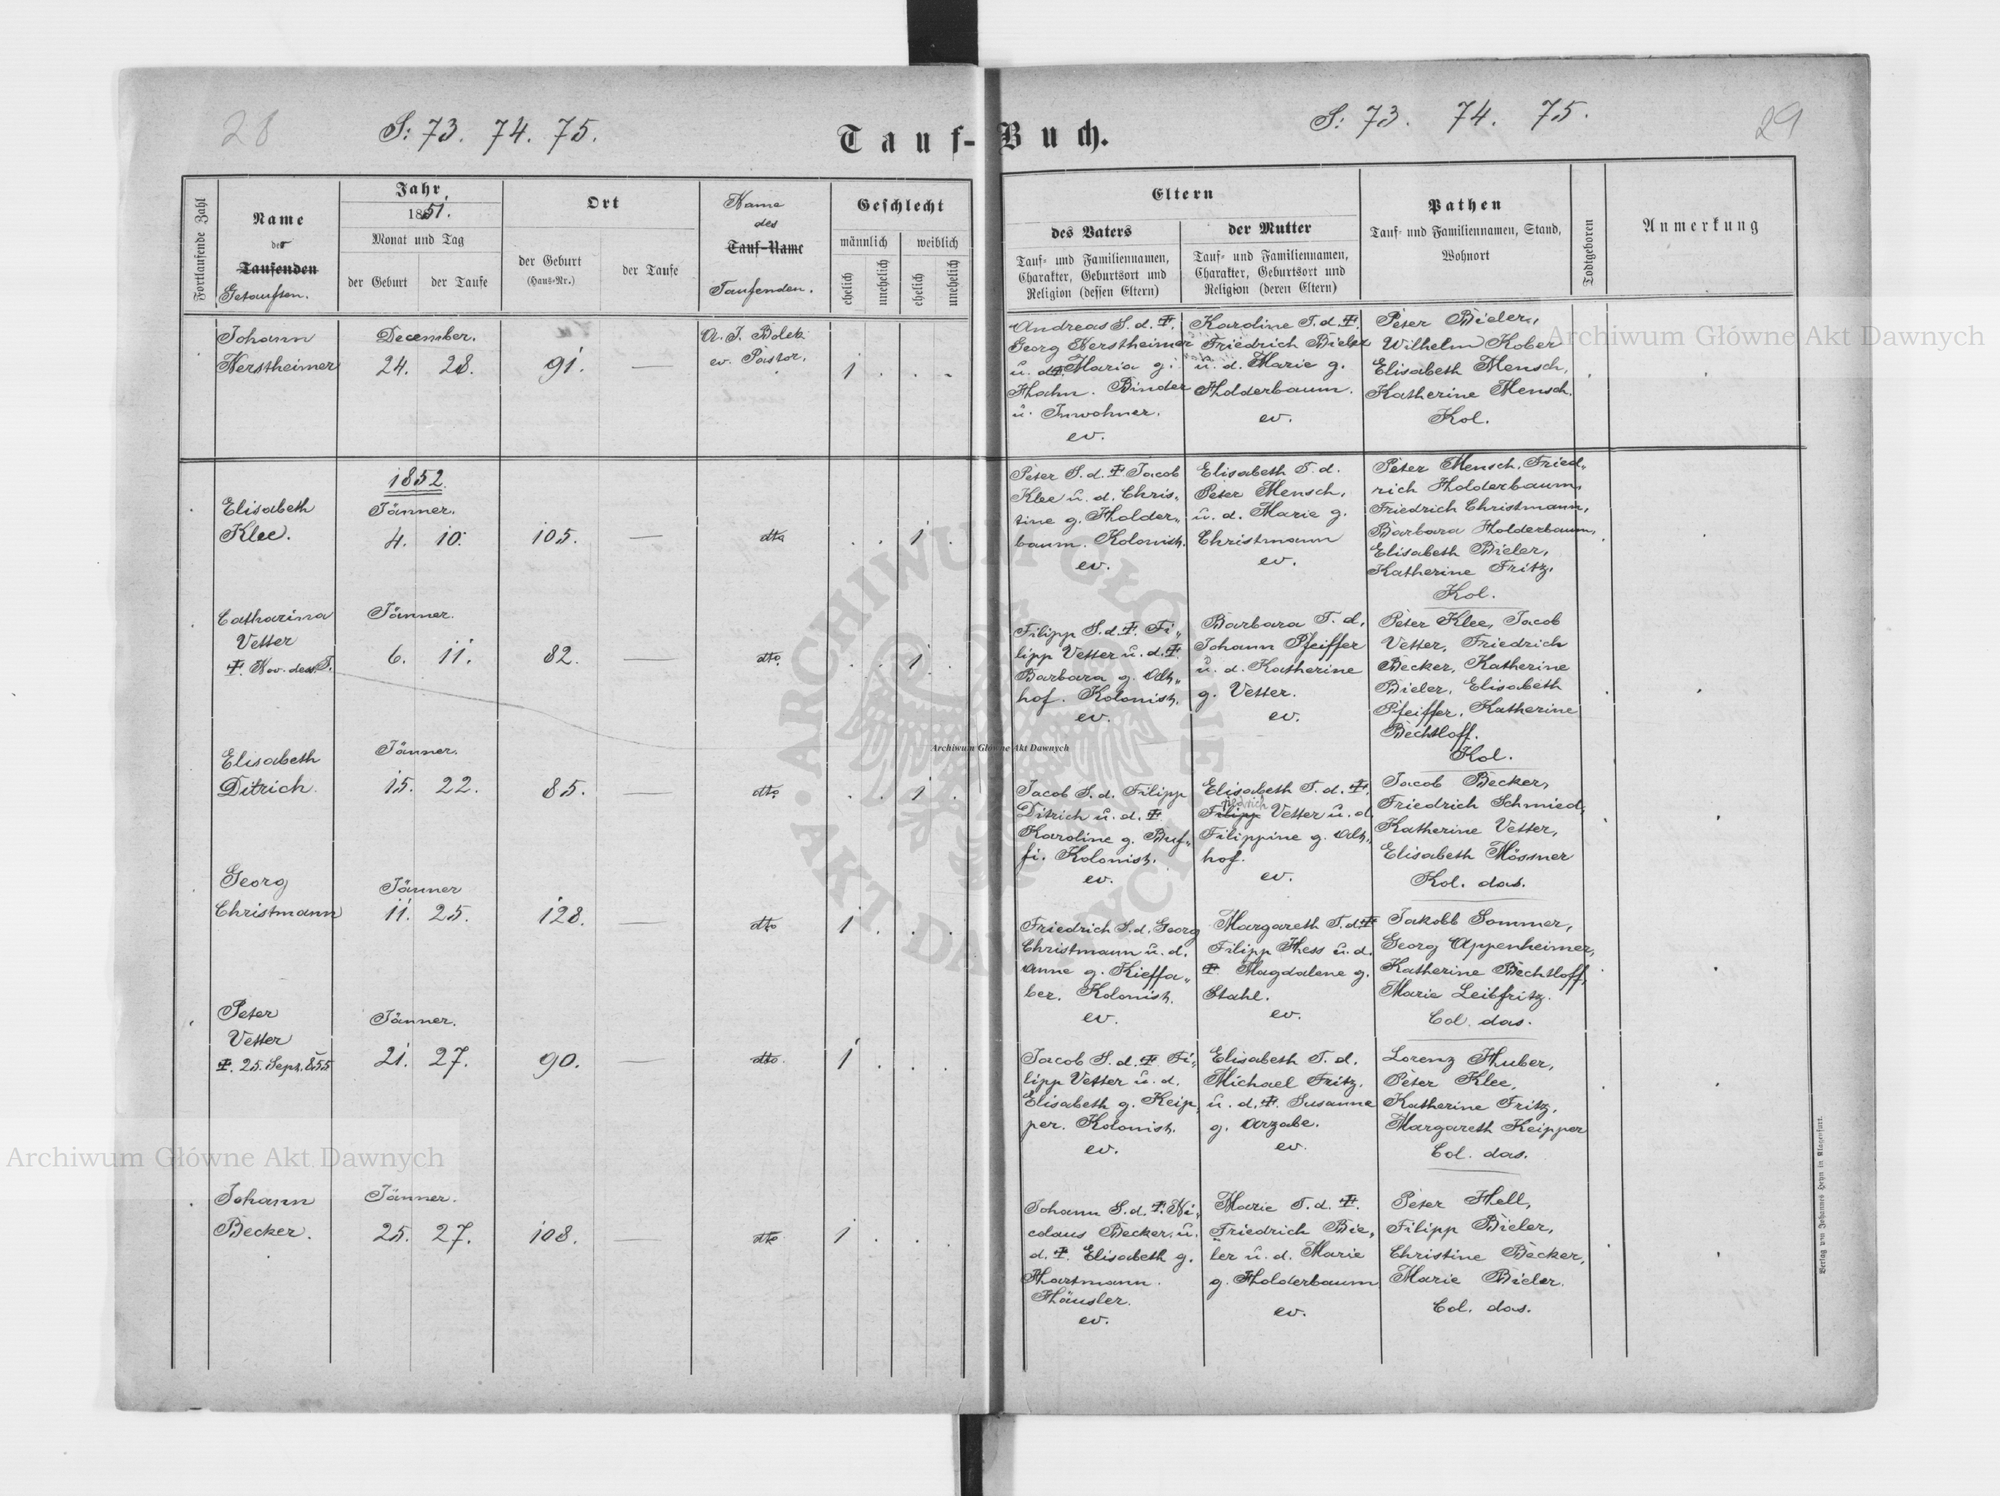 28
S: 73. 74. 75.
Tauf-Buch.
S: 73. 74. 75.
29
Fortlaufende Zahl
Name
des
Taufenden
Getauften.
Jahr
1851.
Monat und Tag
der Geburt
der Taufe
Ort
der Geburt
(Haus-Nr.)
der Taufe
Name
des
Tauf-Name
Taufenden.
Geschlecht
männlich
weiblich
ehelich
unehelich
ehelich
unehelich
Eltern
des Vaters
Tauf- und Familiennamen,
Charakter, Geburtsort und
Religion (dessen Eltern)
der Mutter
Tauf- und Familiennamen,
Charakter, Geburtsort und
Religion (deren Eltern)
Pathen
Tauf- und Familiennamen, Stand,
Wohnort
Todtgeboren
Anmerkung
Johann
Nerstheimer
December.
24. 28.
91.
—
A. J. Bolek
ev. Pastor.
1 . . .
Andreas S. d. ‡.
Georg Nerstheimer
u. d. ‡ Maria g.
Hahn. Binder
u. Inwohner.
ev.
Karoline T. d. ‡.
Friedrich Bieler
u. d. Marie g.
Holderbaum.
ev.
Peter Bieler,
Wilhelm Kober
Elisabeth Mensch,
Katherine Mensch.
Kol.
1852.
Elisabeth
Klee.
Jänner.
4. 10.
105.
—
dto
. . 1 .
Peter S. d. ‡ Jacob
Klee u. d. Chris-
tine g. Holder-
baum. Kolonist.
ev.
Elisabeth T. d.
Peter Mensch,
u. d. Marie g.
Christmann
ev.
Peter Mensch, Fried-
rich Holderbaum,
Friedrich Christmann,
Barbara Holderbaum,
Elisabeth Bieler,
Katherine Fritz,
Kol.
Catharina
Vetter
‡. Nov. dess. J.
Jänner.
6. 11.
82.
—
dto.
. . 1 .
Filipp S. d. ‡. Fi-
lipp Vetter u. d. ‡.
Barbara g. Alt-
hof. Kolonist.
ev.
Barbara T. d.
Johann Pfeiffer
u. d. Katherine
g. Vetter.
ev.
Peter Klee, Jacob
Vetter, Friedrich
Becker, Katherine
Bieler, Elisabeth
Pfeiffer, Katherine
Bechtloff.
Kol.
Elisabeth
Ditrich.
Jänner.
15. 22.
85.
—
dto.
. . 1 .
Jacob S. d. Filipp
Ditrich u. d. ‡
Karoline g. Buf-
fi. Kolonist.
ev.
Elisabeth T. d. ‡.
riedrich
Filipp Vetter u. d.
Filippine g. Alt-
hof.
ev.
Jacob Becker,
Friedrich Schmied,
Katherine Vetter,
Elisabeth Mössner
Kol. das.
Georg
Christmann
Jänner
11. 25.
128.
—
dto
1 . . .
Friedrich S. d. Georg
Christmann u. d.
Anne g. Kieffa-
ber. Kolonist.
ev.
Margareth T. d. ‡
Filipp Hess u. d.
‡ Magdalene g.
Stahl.
ev.
Jakobb Sommer,
Georg Appenheimer,
Katherine Bechtloff,
Marie Leibfritz.
Col. das.
Peter
Vetter
‡. 25. Sept. 855
Jänner.
21. 27.
90.
—
dto.
1 . . .
Jacob S. d. ‡ Fi-
lipp Vetter u. d.
Elisabeth g. Keip-
per. Kolonist.
ev.
Elisabeth T. d.
Michael Fritz,
u. d. ‡. Susanne
g. Arzabe.
ev.
Lorenz Huber,
Peter Klee,
Katherine Fritz,
Margareth Keipper
Col. das.
Johann
Becker.
Jänner.
25. 27.
108.
—
dto
1 . . .
Johann S. d. ‡. Ni-
colaus Becker, u.
d. ‡. Elisabeth g.
Hartmann.
Häusler.
ev.
Marie T. d. ‡.
Friedrich Bie-
ler u. d. Marie
g. Holderbaum
ev.
Peter Hell,
Filipp Bieler,
Christine Becker,
Marie Bieler.
Col. das.
Verlag von Johannes Heyn in Klagenfurt.
Archiwum Główne Akt Dawnych
Archiwum Główne Akt Dawnych
Archiwum Główne Akt Dawnych
ARCHIWUM GŁÓWNE AKT DAWNYCH